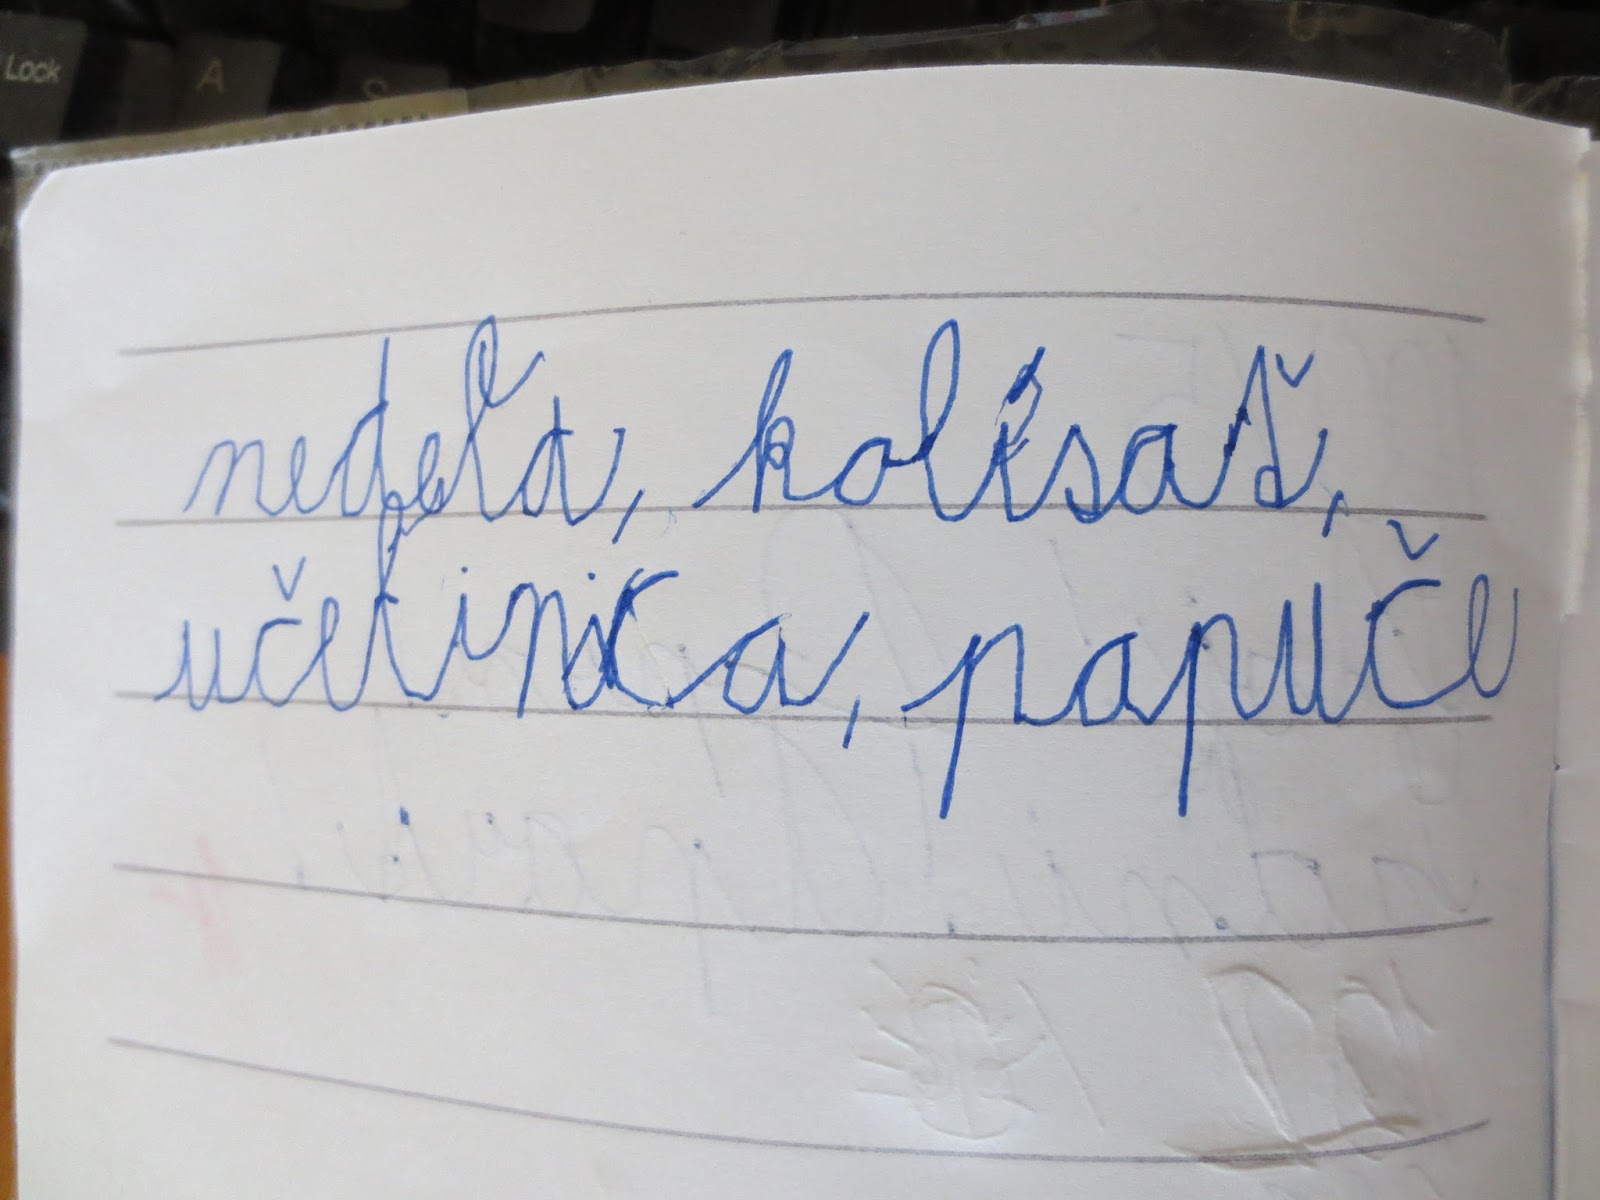 Lock A S
nedeľa, kolísaš,
učetinica, papuče